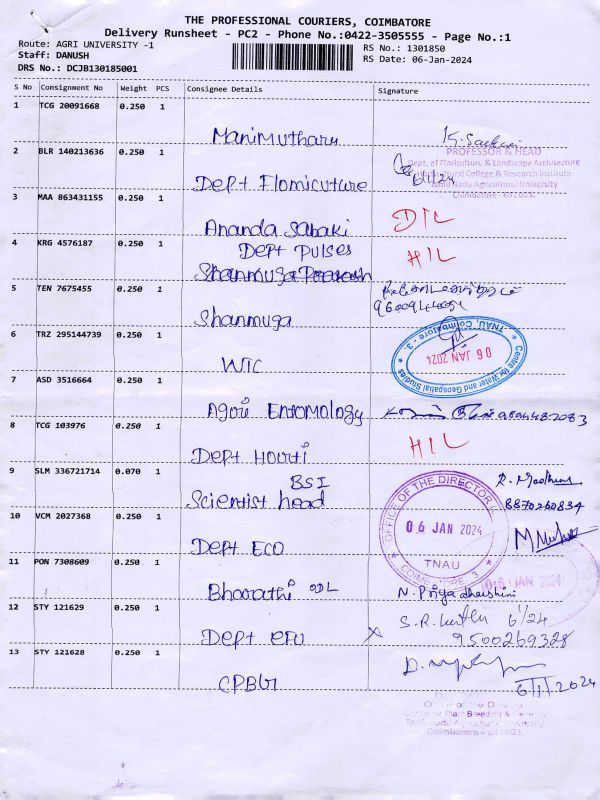 THE PROFESSIONAL COURIERS, COIMBATORE
Delivery Runsheet - PC2 - Phone No.:0422-3505555 - Page No.:1
Route: AGRI UNIVERSITY -1
RS No.: 1301850
Staff: DANUSH
RS Date: 06-Jan-2024
DRS No.: DCJB130185001
S No Consignment No Weight PCS Consignee Details Signature
1 TCG 20091668 0.250 1
Manimutharu
PROFESSOR & HEAD
2 BLR 140213636 0.250 1
Dept. of Floriculture & Landscape Architecture
Horticultural College & Research Institute
6/1/24
Tamil Nadu Agricultural University
Dept Flomicuture
Coimbatore
3 MAA 863431155 0.250 1
DIL
Ananda Sabaki
4 KRG 4576187 0.250 1
Dept Pulses
HIL
Shanmuga
5 TEN 7675455 0.250 1
Shanmuga
TNAU, Coimbatore - 3
6 TRZ 295144739 0.250 1
06 JAN 2024
Centre for Water and Geospatial Studies
WTC
7 ASD 3516664 0.250 1
Agri Entomology
8 TCG 103976 0.250 1
HIL
Dept Hourti
9 SLM 336721714 0.070 1
BSI
Scientist head
R. Madhu
8870260834
OFFICE OF THE DIRECTOR
10 VCM 2027368 0.250 1
06 JAN 2024
Dept ECO
TNAU
11 PON 7308609 0.250 1
COIMBATORE 3
06 JAN 2024
Bharathi ODL
N. Priyadharshini
12 STY 121629 0.250 1
S.R. 6/24
Dept EFU
X 9500269328
13 STY 121628 0.250 1
CPBG
6/1/2024
Office of the
Centre for Plant Breeding & Genetics
Tamil Nadu Agricultural University
Coimbatore - 641003.